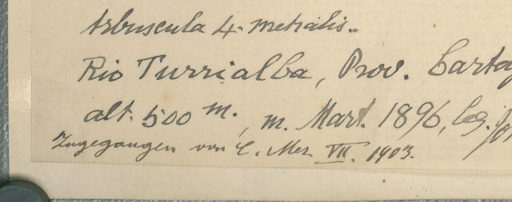 Arbuscula 4-metralis.
Rio Turrialba, Prov. Cartag
alt. 500 m., m. Mart. 1896, leg.
Zugegangen von C. Mez VII. 1903.